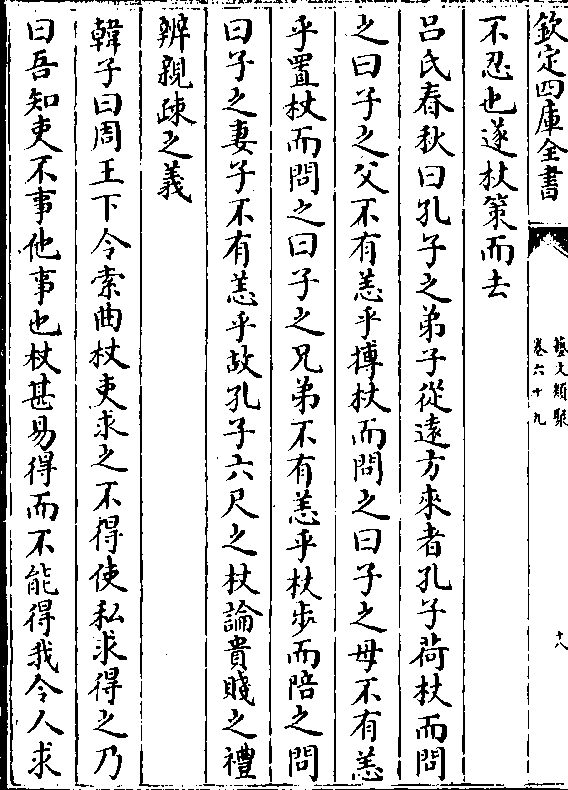 欽定四庫全書
藝文類聚
卷六十九
十八
不忍也遂杖策而去
呂氏春秋曰孔子之弟子從遠方來者孔子荷杖而問
之曰子之父不有恙乎搏杖而問之曰子之母不有恙
乎置杖而問之曰子之兄弟不有恙乎杖步而陪之問
曰子之妻子不有恙乎故孔子六尺之杖論貴賤之禮
辨親疎之義
韓子曰周王下令索曲杖吏求之不得使私求得之乃
曰吾知吏不事他事也杖甚易得而不能得我令人求